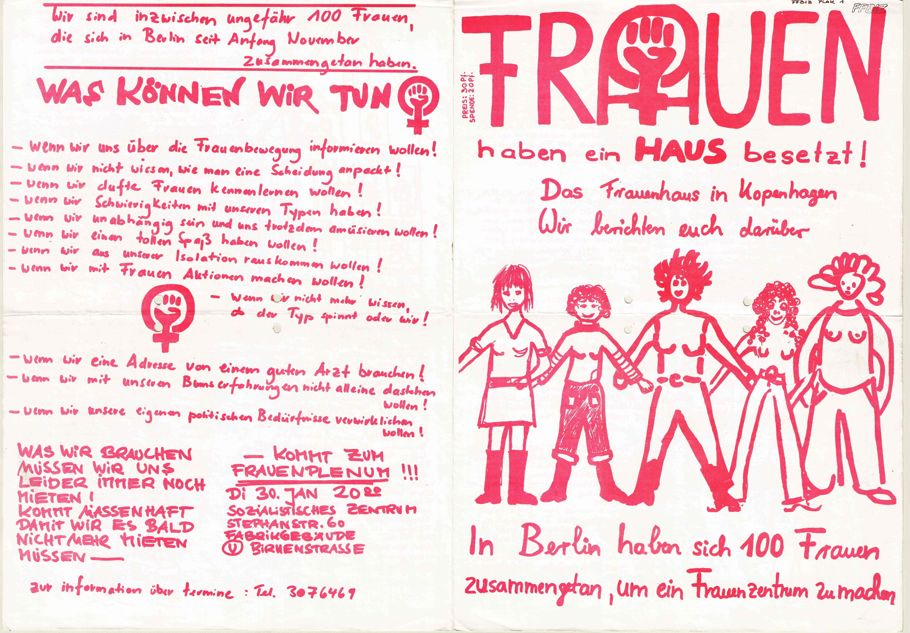 Wir sind inzwischen ungefähr 100 Frauen,
die sich in Berlin seit Anfang November
zusammengetan haben.
WAS KÖNNEN WIR TUN
– wenn wir uns über die Frauenbewegung informieren wollen!
– wenn wir nicht wissen, wie man eine Scheidung anpackt!
– wenn wir dufte Frauen kennenlernen wollen!
– wenn wir Schwierigkeiten mit unseren Typen haben!
– wenn wir unabhängig sein und uns trotzdem amüsieren wollen!
– wenn wir einen tollen Spaß haben wollen!
– wenn wir aus unserer Isolation rauskommen wollen!
– wenn wir mit Frauen Aktionen machen wollen!
– wenn wir nicht mehr wissen,
ob der Typ spinnt oder wir!
– wenn wir eine Adresse von einem guten Arzt brauchen!
– wenn wir mit unseren Bumserfahrungen nicht alleine dastehen
wollen!
– wenn wir unsere eigenen politischen Bedürfnisse verwirklichen
wollen!
WAS WIR BRAUCHEN
MÜSSEN WIR UNS
LEIDER IMMER NOCH
MIETEN!
KOMMT MASSENHAFT
DAMIT WIR ES BALD
NICHT MEHR MIETEN
MÜSSEN —
— KOMMT ZUM
FRAUENPLENUM !!!
DI 30. JAN 20 00
SOZIALISTISCHES ZENTRUM
STEPHANSTR. 60
FABRIKGEBÄUDE
U BIRKENSTRASSE
zur information über termine : Tel. 3076469
FFBIZ PLAK 1
FFBIZ
FRAUEN
PREIS: 30 Pf.
SPENDE: 20 Pf.
haben ein HAUS besetzt!
Das Frauenhaus in Kopenhagen
Wir berichten euch darüber
In Berlin haben sich 100 Frauen
zusammengetan, um ein Frauenzentrum zu machen